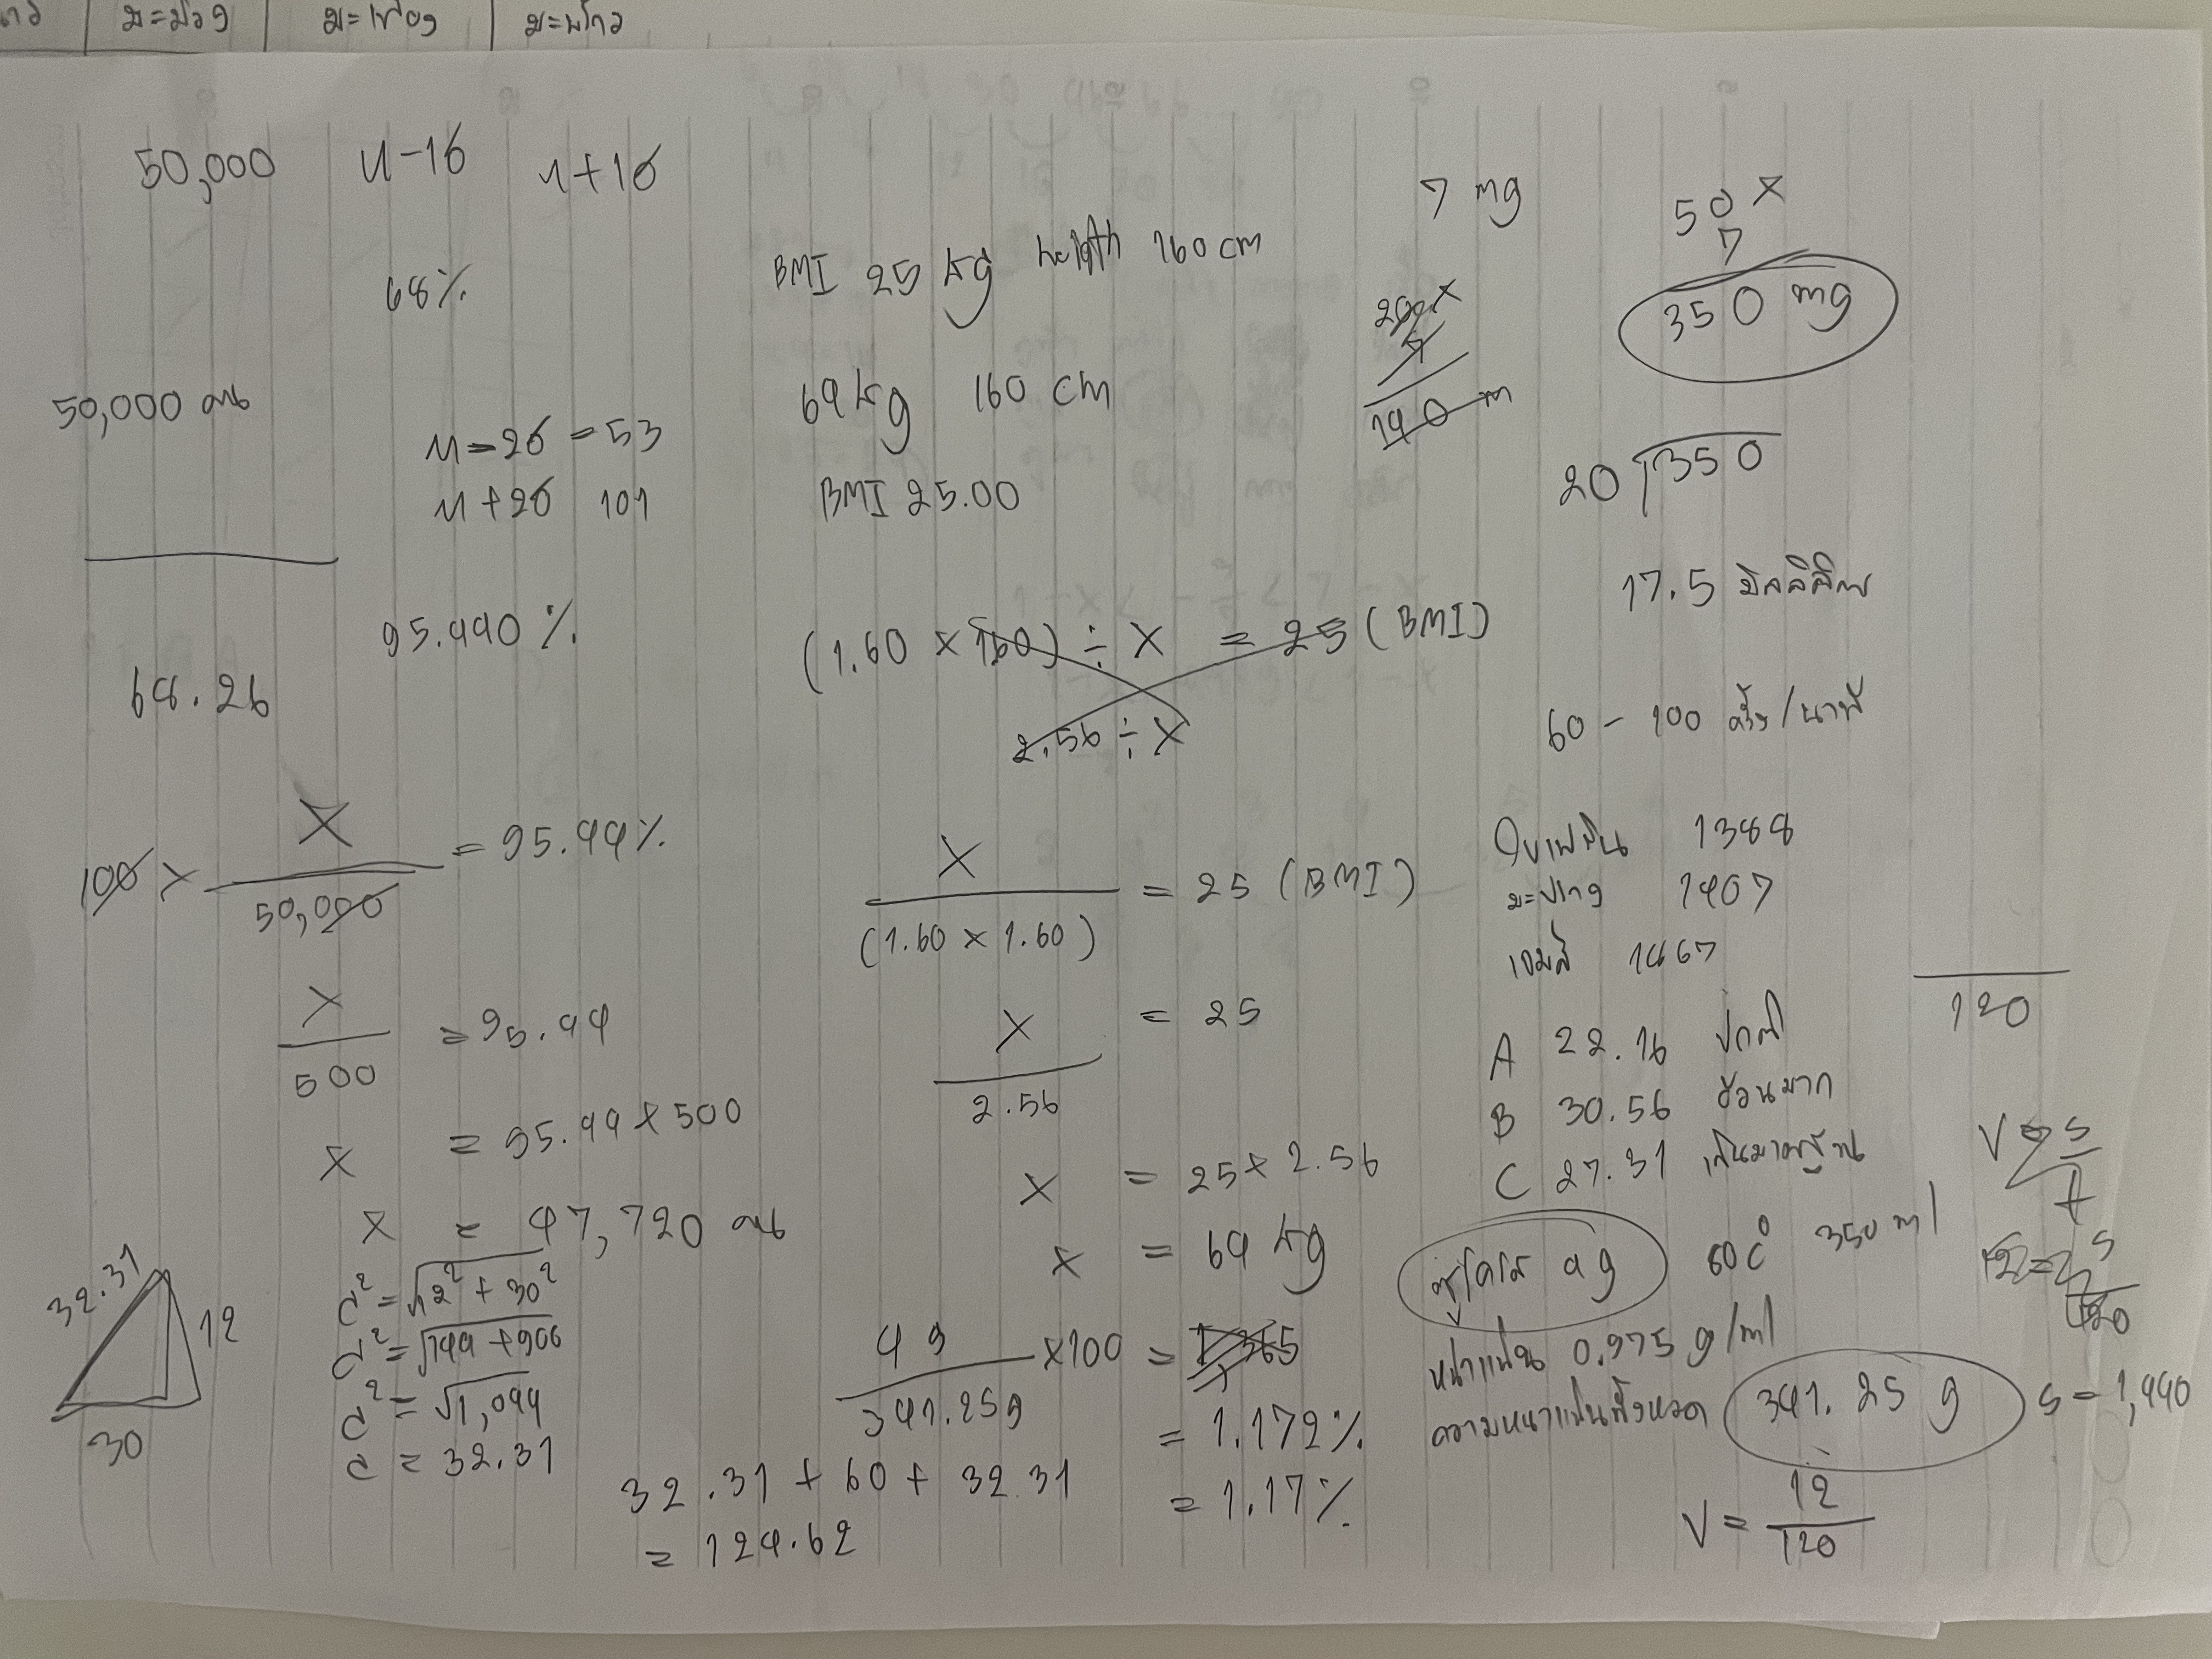 ม=ม่วง ม=เฟือง
50,000 μ-1σ μ+1σ
68%
50,000 คน
μ-2σ = 53
μ+2σ 101
95.440 %
68.26
100 × X / 50,000 = 95.44%
X / 500 = 95.44
X = 95.44 × 500
X = 47,720 คน
32.31
12
30
c² = √12² + 30²
c² = √144 + 900
c² = √1,044
c = 32.31
32.31 + 60 + 32.31
= 124.62
BMI 25 kg heigth 160 cm
64 kg 160 cm
BMI 25.00
(1.60 × 160) ÷ X = 25 (BMI)
2.56 ÷ X
X / (1.60 × 1.60) = 25 (BMI)
X / 2.56 = 25
X = 25 × 2.56
X = 64 kg
4 g / 341.25g × 100
= 1.172%
= 1.17%
7 mg
200 ×
140 m
50 ×
7
350 mg
20 350
17.5 มิลลิลิตร
60 - 100 ครั้ง/นาที
1388
มะปราง 1407
1467
A 22.16 ปกติ
B 30.56 อ้วนมาก
C 27.31 เกินมาตรฐาน
4 g 60 C° 350 ml
หนาแน่น 0.975 g/ml
ความหนาแน่นทั้งหมด 341.25 g
120
V = s / t
s = 1,440
V = 12 / 120